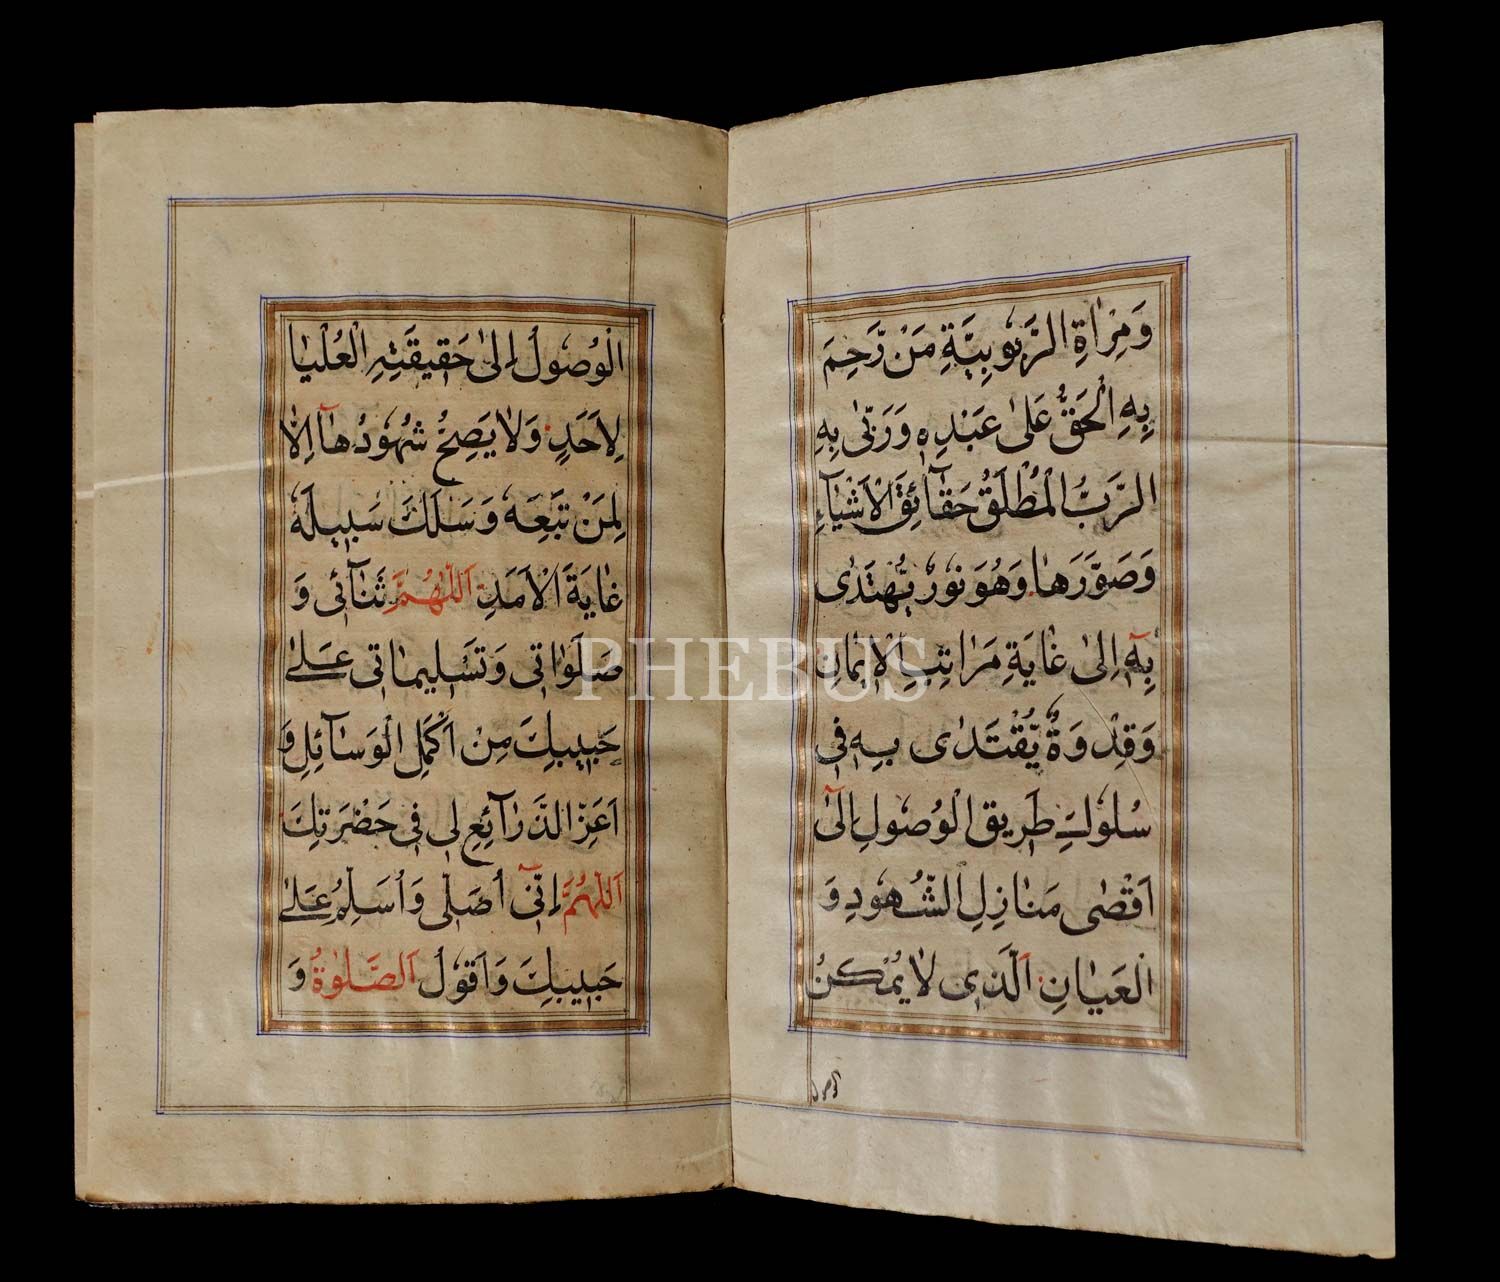 وَمِرْاٰةِ الرَّبُوبِيَّةِ مَنْ رَّحِمَ
بِهِ الْحَقُّ عَلىٰ عَبْدِهٖ وَرَبّٰى بِهِ
الرَّبُّ الْمُطْلَقُ حَقَآئِقَ الْاَشْيَآءِ
وَصَوَّرَهَا وَهُوَ نُوْرٌ يُّهْتَدٰى
بِهٖٓ اِلىٰ غَايَةِ مَرَاتِبِ الْاِيْمَانِ
وَقِدْوَةٌ يُّقْتَدٰى بِهٖ فِى
سُلُوْكِ طَرِيقِ الْوُصُولِ اِلٰٓى
اَقْصٰى مَنَازِلِ الشُّهُوْدِ وَ
الْعَيَانِ الَّذِى لَا يُمْكِنُ
الوصول
الْوُصُولُ اِلىٰ حَقِيقَتِهِ الْعُلْيَا
لِاَحَدٍ وَلَا يَصِحُّ شُهُوْدُهَآ اِلَّا
لِمَنْ تَبَعِهٗ وَسَلَكَ سَبِيلَهٗ
غَايَةَ الْاَمَدِ اَللّٰهُمَّ ثَنَآئِى وَ
صَلَوَاتِى وَتَسْلِيمَاتِى عَلىٰ
حَبِيبِكَ مِنْ اَكْمَلِ الْوَسَآئِلِ وَ
اَعَزِّ الذَّرَآئِعِ لِى فِى حَضْرَتِكَ
اَللّٰهُمَّ اِنِّىٓ اُصَلِّى وَاُسَلِّمُ عَلىٰ
حَبِيبِكَ وَاَقُوْلُ اَلصَّلٰوةُ وَ
PHEBUS